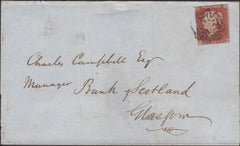 Charles Campbell Esq
Manager Bank of Scotland
Glasgow